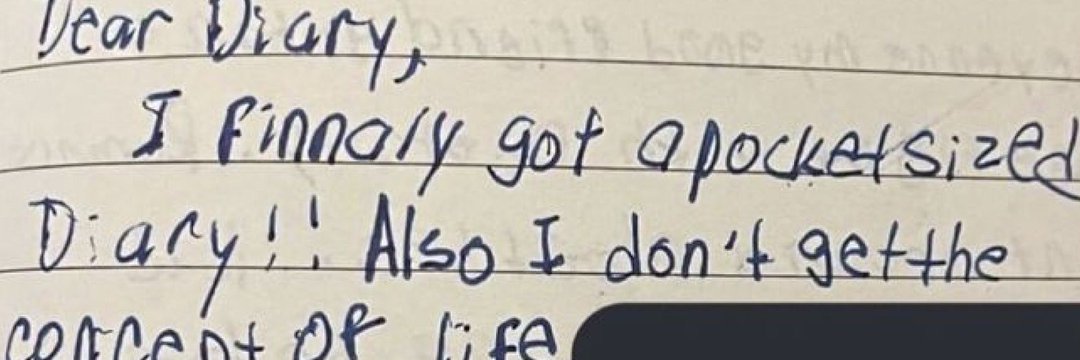 Dear Diary,
I finnaly got a pocketsized
Diary!! Also I don't get the
concept of life